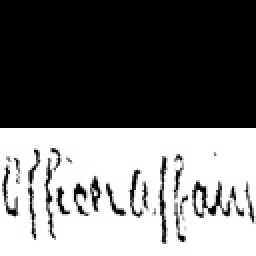 Officer affairs